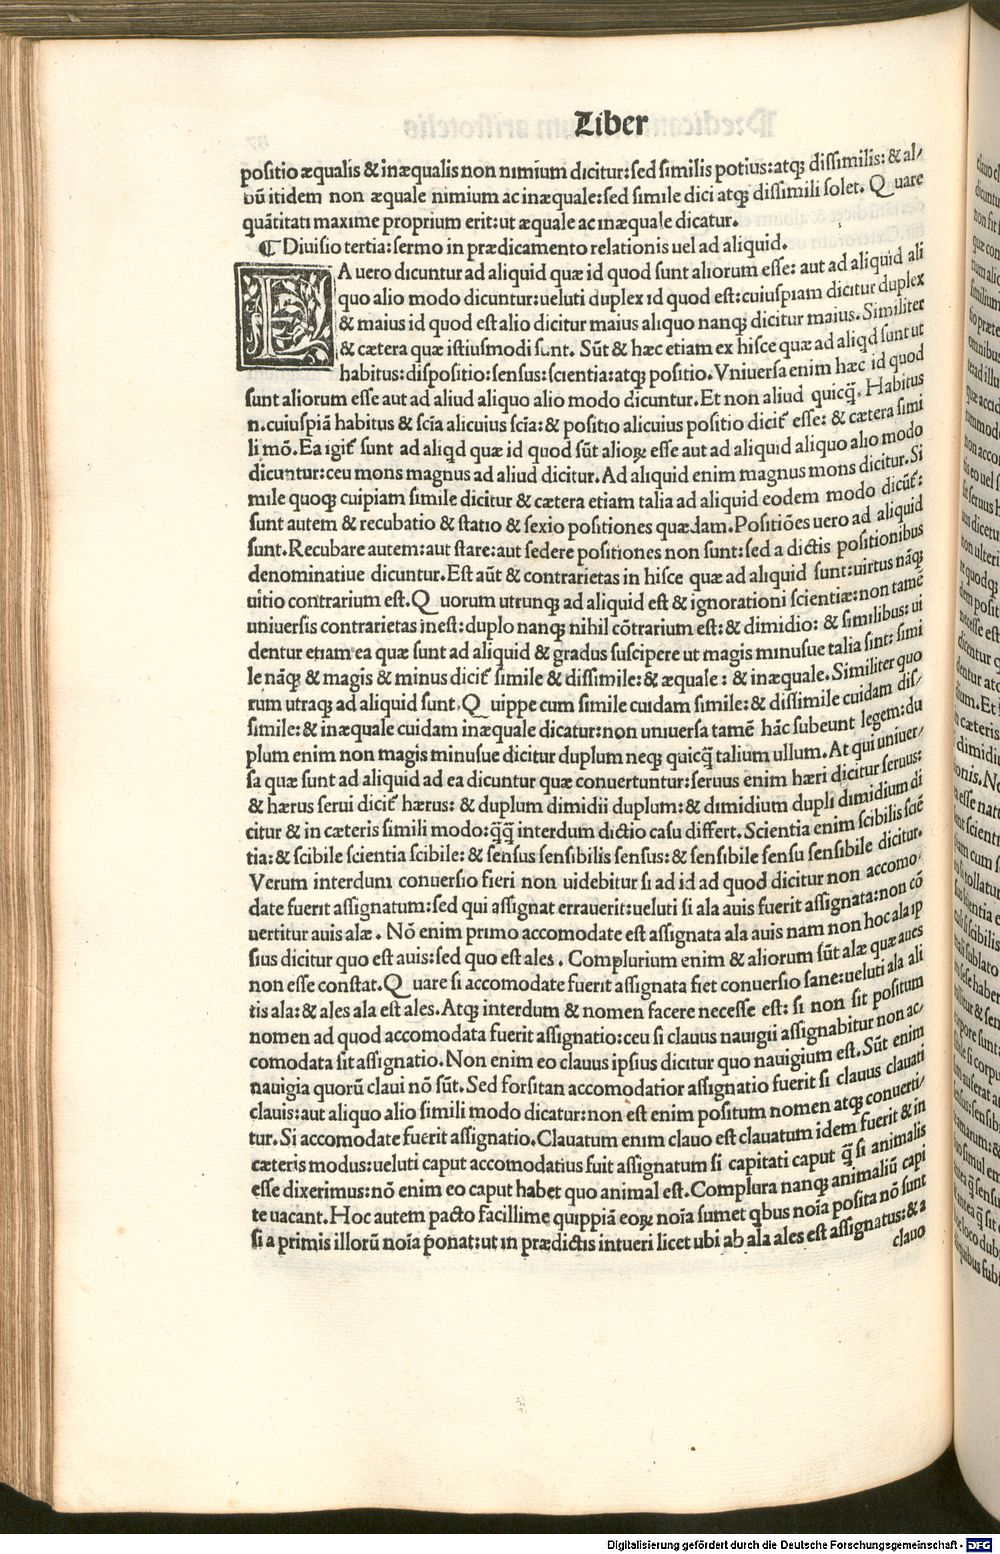 Liber
positio æqualis & inæqualis non nimium dicitur: sed similis potius: atqꝫ dissimilis: & al/
bū itidem non æquale nimium ac inæquale: sed simile dici atqꝫ dissimili solet. Quare
quātitati maxime proprium erit: ut æquale ac inæquale dicatur.
¶ Diuisio tertia: sermo in prædicamento relationis uel ad aliquid.
EA uero dicuntur ad aliquid quæ id quod sunt aliorum esse: aut ad aliquid ali
quo alio modo dicuntur: ueluti duplex id quod est: cuiuspiam dicitur duplex
& maius id quod est alio dicitur maius aliquo nanqꝫ dicitur maius. Similiter
& cætera quæ istiusmodi sunt. Sūt & hæc etiam ex hisce quæ ad aliqd sunt ut
habitus: dispositio: sensus: scientia: atqꝫ positio. Vniuersa enim hæc id quod
sunt aliorum esse aut ad aliud aliquo alio modo dicuntur. Et non aliud quicq̄. Habitus
n. cuiuspiā habitus & scīa alicuius scīa: & positio alicuius positio dicit̃ esse: & cætera simi
li mō. Ea igit̃ sunt ad aliqd quæ id quod sūt alioꝝ esse aut ad aliquid aliquo alio modo
dicuntur: ceu mons magnus ad aliud dicitur. Ad aliquid enim magnus mons dicitur. Si
mile quoqꝫ cuipiam simile dicitur & cætera etiam talia ad aliquid eodem modo dicūt̃:
sunt autem & recubatio & statio & sexio positiones quædam. Positiões uero ad aliquid
sunt. Recubare autem: aut stare: aut sedere positiones non sunt: sed a dictis positionibus
denominatiue dicuntur. Est aūt & contrarietas in hisce quæ ad aliquid sunt: uirtus nāqꝫ
uitio contrarium est. Quorum utrunqꝫ ad aliquid est & ignorationi scientiæ: non tamē
uniuersis contrarietas inest: duplo nanqꝫ nihil cōtrarium est: & dimidio: & similibus: ui
dentur etiam ea quæ sunt ad aliquid & gradus suscipere ut magis minusue talia sint: simi
le nāqꝫ & magis & minus dicit̃ simile & dissimile: & æquale: & inæquale. Similiter quo
rum utraqꝫ ad aliquid sunt. Quippe cum simile cuidam simile: & dissimile cuidam dis/
simile: & inæquale cuidam inæquale dicatur: non uniuersa tamē hāc subeunt legem: du
plum enim non magis minusue dicitur duplum neqꝫ quicq̄ talium ullum. At qui uniuer/
sa quæ sunt ad aliquid ad ea dicuntur quæ conuertuntur: seruus enim hæri dicitur seruus:
& hærus serui dicit̃ hærus: & duplum dimidii duplum: & dimidium dupli dimidium di
citur & in cæteris simili modo: q̄q̄ interdum dictio casu differt. Scientia enim scibilis sciē
tia: & scibile scientia scibile: & sensus sensibilis sensus: & sensibile sensu sensibile dicitur.
Verum interdum conuersio fieri non uidebitur si ad id ad quod dicitur non accomo/
date fuerit assignatum: sed qui assignat errauerit: ueluti si ala auis fuerit assignata: non cō
uertitur auis alæ. Nō enim primo accomodate est assignata ala auis nam non hoc ala ip
sius dicitur quo est auis: sed quo est ales. Complurium enim & aliorum sūt alæ quæ aues
non esse constat. Quare si accomodate fuerit assignata fiet conuersio sane: ueluti ala ali
tis ala: & ales ala est ales. Atqꝫ interdum & nomen facere necesse est: si non sit positum
nomen ad quod accomodata fuerit assignatio: ceu si clauus nauigii assignabitur non ac/
comodata sit assignatio. Non enim eo clauus ipsius dicitur quo nauigium est. Sūt enim
nauigia quorū claui nō sūt. Sed forsitan accomodatior assignatio fuerit si clauus clauati
clauis: aut aliquo alio simili modo dicatur: non est enim positum nomen atqꝫ conuerti/
tur. Si accomodate fuerit assignatio. Clauatum enim clauo est clauatum idem fuerit & in
cæteris modus: ueluti caput accomodatius fuit assignatum si capitati caput q̄ si animalis
esse dixerimus: nō enim eo caput habet quo animal est. Complura nanqꝫ animaliū capi
te uacant. Hoc autem pacto facillime quippiā eoꝝ noīa sumet qbus noīa posita nō sunt
si a primis illorū noīa ponat: ut in prædictis intueri licet ubi ab ala ales est assignatus: & a
clauo
Digitalisierung gefördert durch die Deutsche Forschungsgemeinschaft - DFG